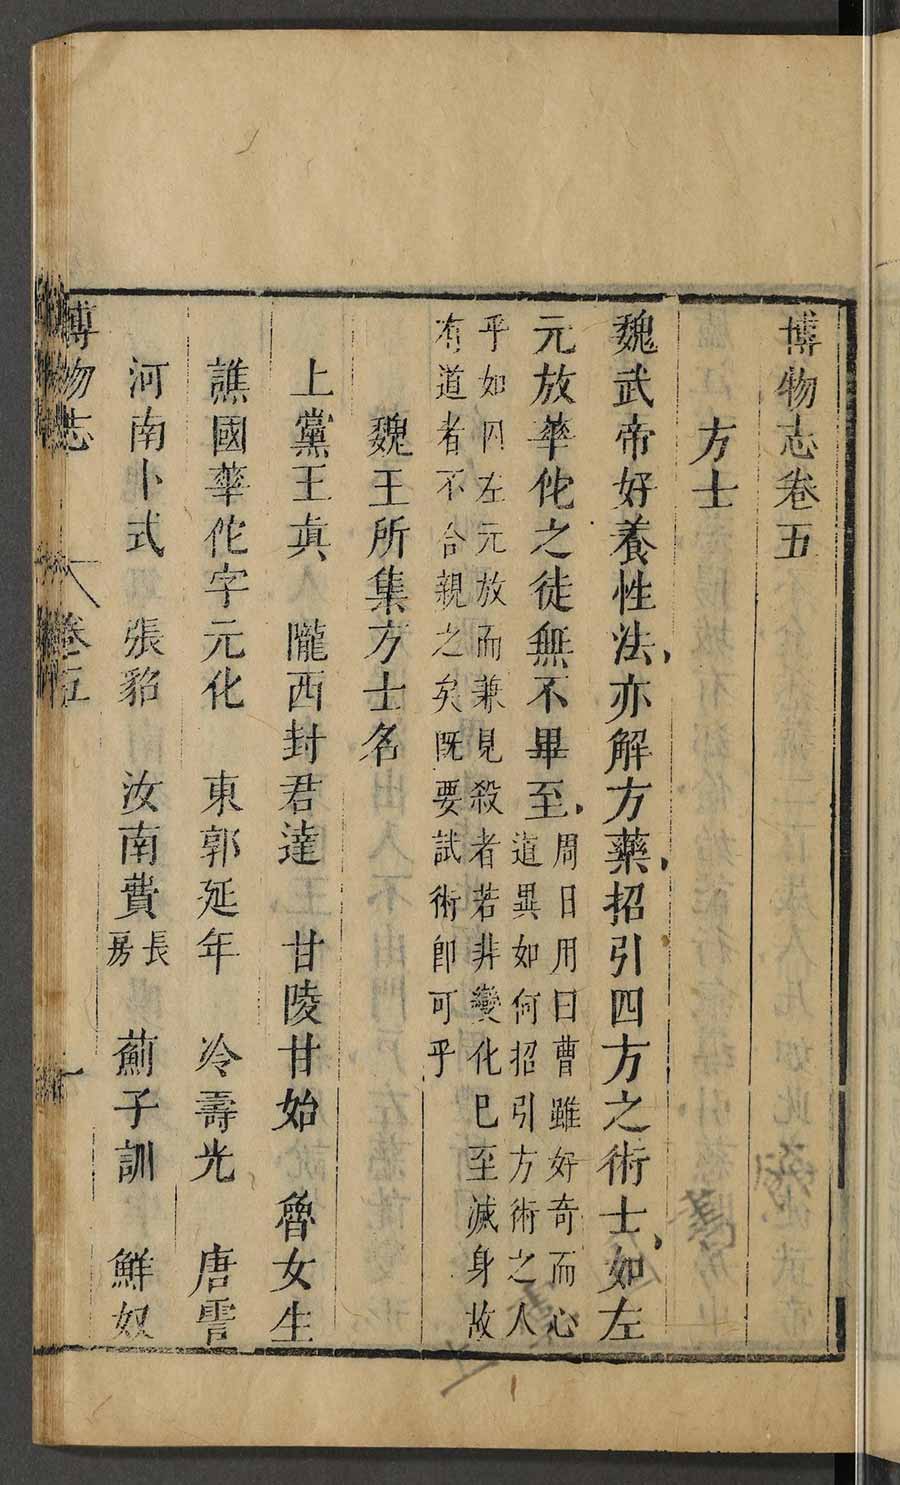 博物志卷五
方士
魏武帝好養性法亦解方藥招引四方之術士如左
元放華佗之徒無不畢至
周日用曰曹雖好奇而心
道異如何招引方術之人
乎如因左元放而兼見殺者若非變化已至滅身故
有道者不合親之矣既要試術即可乎
魏王所集方士名
上黨王真 隴西封君達 甘陵甘始 魯女生
譙國華佗字元化 東郭延年 冷壽光 唐霅
河南卜式 張貂 汝南費長房 薊子訓 鮮奴
博物志 卷五 一